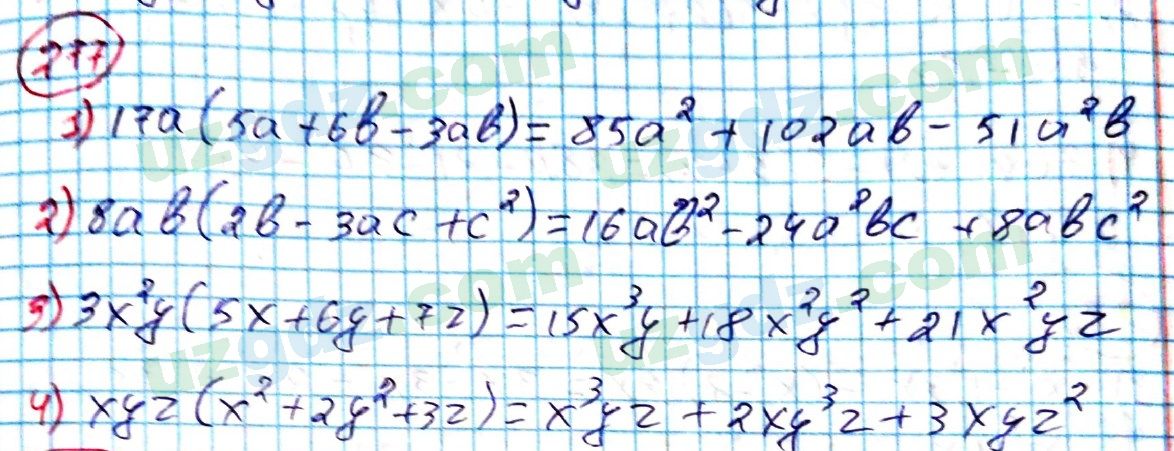 277
1) 17a(5a+6b-3ab)=85a²+102ab-51a²b
2) 8ab(2b-3ac+c²)=16ab²-24a²bc+8abc²
3) 3x²y(5x+6y+7z)=15x³y+18x²y²+21x²yz
4) xyz(x²+2y²+3z)=x³yz+2xy³z+3xyz²
uzgdz.com
uzgdz.com
uzgdz.com
uzgdz.com